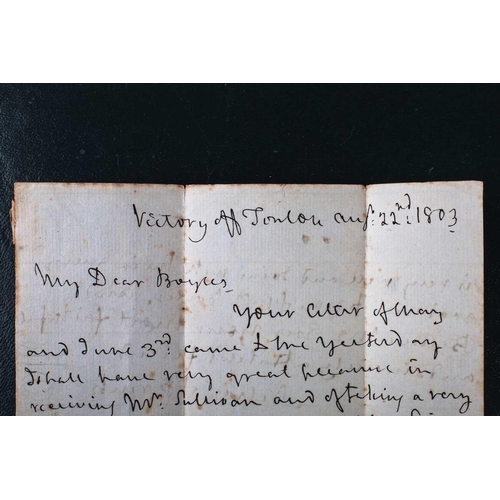 Victory Off Toulon Augt: 22nd: 1803
My Dear Boyles
Your letter of May
and June 3rd: came to me yesterday
I shall have very great pleasure in
receiving Mr. Sullivan and of taking a very